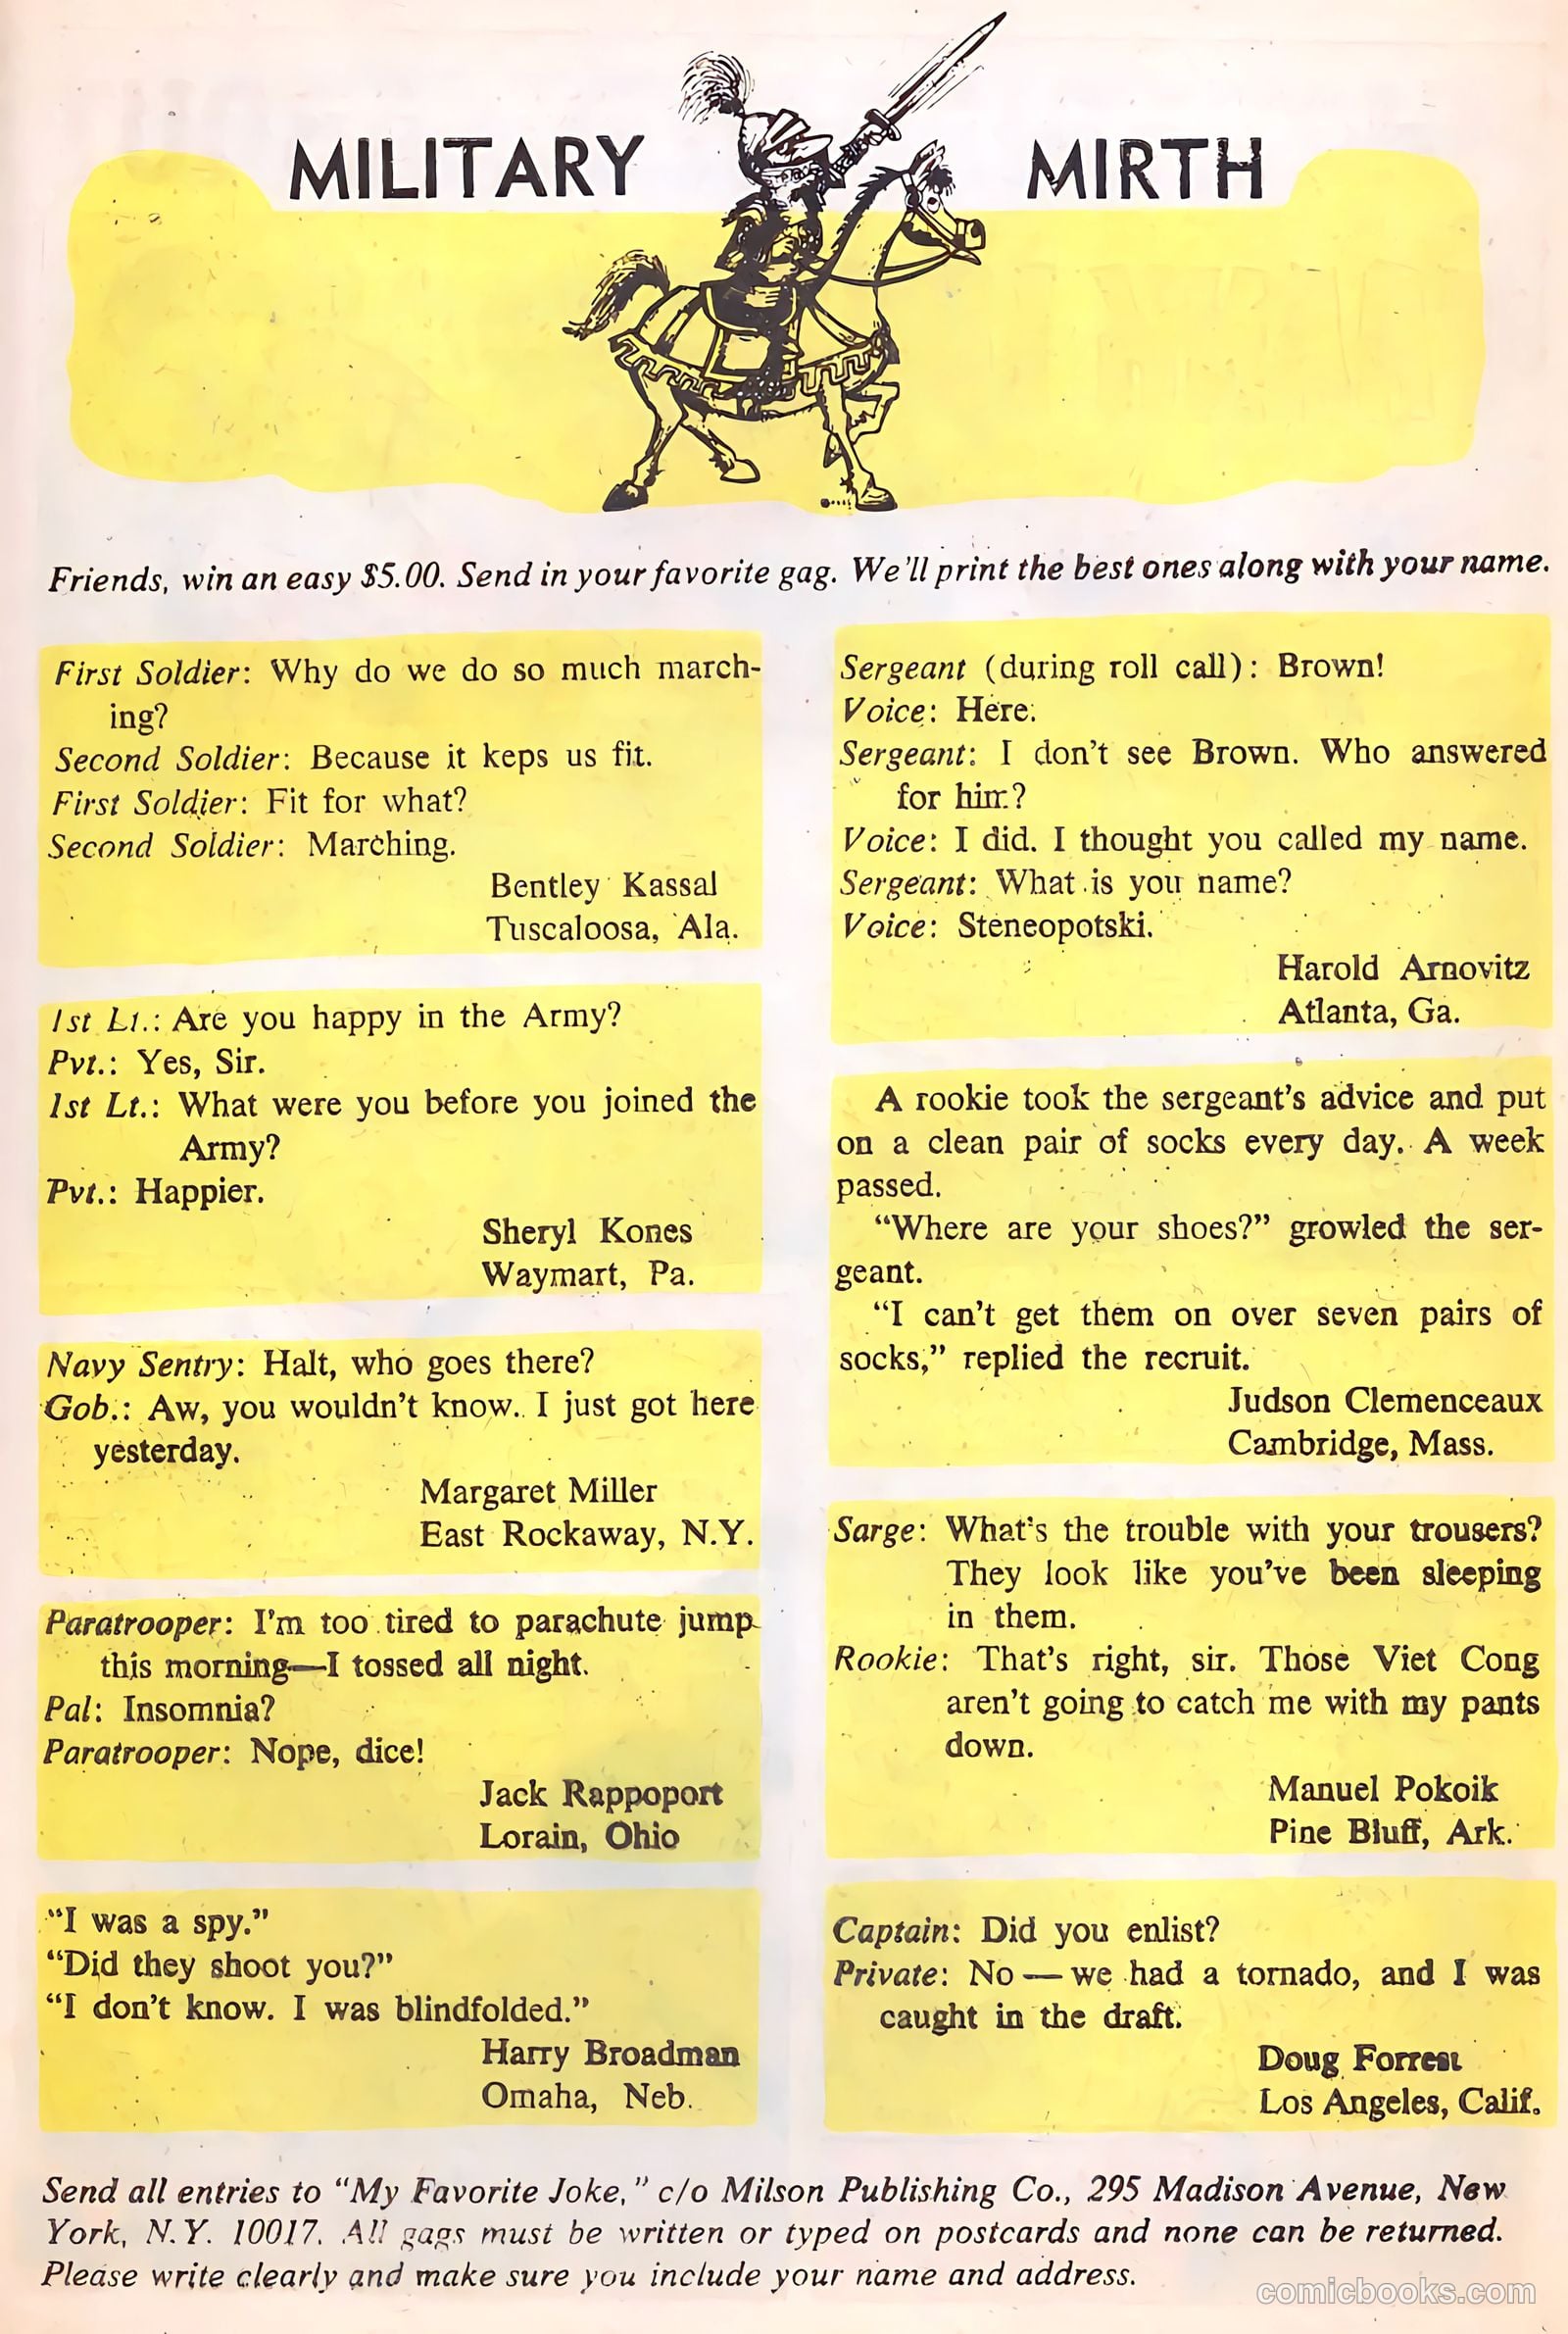 MILITARY MIRTH
Friends, win an easy $5.00. Send in your favorite gag. We'll print the best ones along with your name.
First Soldier: Why do we do so much march-
ing?
Second Soldier: Because it keps us fit.
First Soldier: Fit for what?
Second Soldier: Marching.
Bentley Kassal
Tuscaloosa, Ala.
1st Lt.: Are you happy in the Army?
Pvt.: Yes, Sir.
1st Lt.: What were you before you joined the
Army?
Pvt.: Happier.
Sheryl Kones
Waymart, Pa.
Navy Sentry: Halt, who goes there?
Gob.: Aw, you wouldn't know. I just got here
yesterday.
Margaret Miller
East Rockaway, N.Y.
Paratrooper: I'm too tired to parachute jump
this morning—I tossed all night.
Pal: Insomnia?
Paratrooper: Nope, dice!
Jack Rappoport
Lorain, Ohio
"I was a spy."
"Did they shoot you?"
"I don't know. I was blindfolded."
Harry Broadman
Omaha, Neb.
Sergeant (during roll call): Brown!
Voice: Here.
Sergeant: I don't see Brown. Who answered
for him?
Voice: I did. I thought you called my name.
Sergeant: What is your name?
Voice: Steneopotski.
Harold Arnovitz
Atlanta, Ga.
A rookie took the sergeant's advice and put
on a clean pair of socks every day. A week
passed.
"Where are your shoes?" growled the ser-
geant.
"I can't get them on over seven pairs of
socks," replied the recruit.
Judson Clemenceaux
Cambridge, Mass.
Sarge: What's the trouble with your trousers?
They look like you've been sleeping
in them.
Rookie: That's right, sir. Those Viet Cong
aren't going to catch me with my pants
down.
Manuel Pokoik
Pine Bluff, Ark.
Captain: Did you enlist?
Private: No — we had a tornado, and I was
caught in the draft.
Doug Forrest
Los Angeles, Calif.
Send all entries to "My Favorite Joke," c/o Milson Publishing Co., 295 Madison Avenue, New
York, N.Y. 10017. All gags must be written or typed on postcards and none can be returned.
Please write clearly and make sure you include your name and address.
comicbooks.com